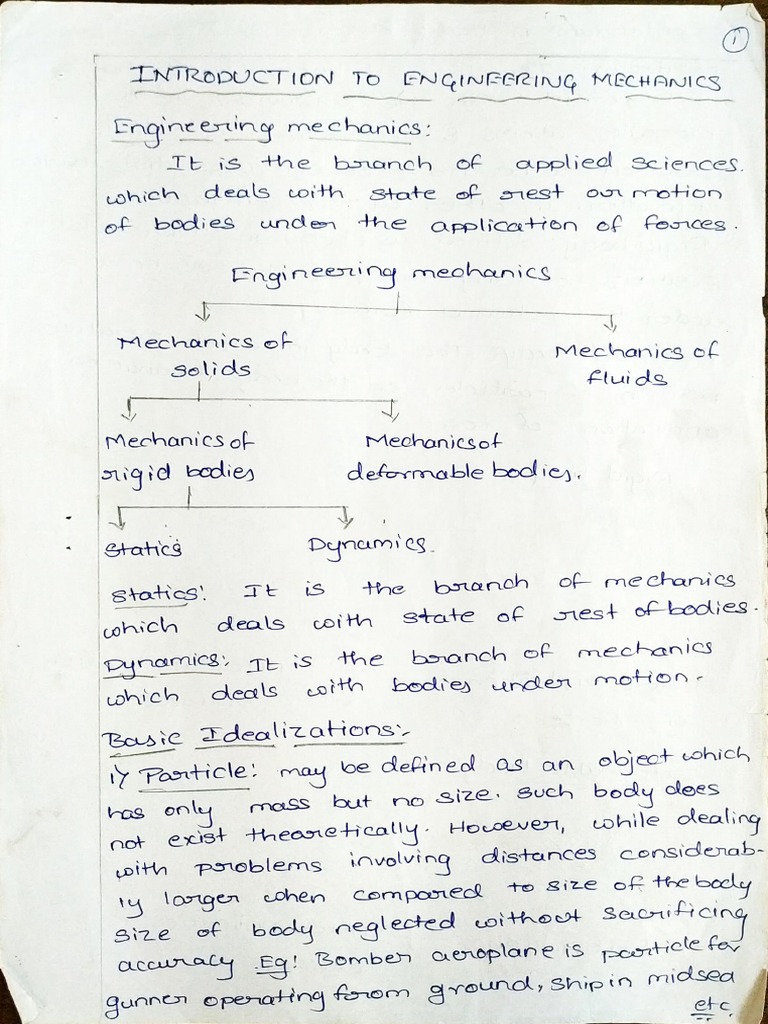 1
INTRODUCTION TO ENGINEERING MECHANICS
Engineering mechanics:
It is the branch of applied sciences.
which deals with state of rest or motion
of bodies under the application of forces.
Engineering mechanics
Mechanics of
solids
Mechanics of
fluids
Mechanics of
rigid bodies
Mechanics of
deformable bodies.
Statics
Dynamics.
Statics: It is the branch of mechanics
which deals with state of rest of bodies.
Dynamics: It is the branch of mechanics
which deals with bodies under motion.
Basic Idealizations:-
1) Particle: may be defined as an object which
has only mass but no size. Such body does
not exist theoretically. However, while dealing
with problems involving distances considerab-
ly larger when compared to size of the body
size of body neglected without sacrificing
accuracy Eg: Bomber aeroplane is particle for
gunner operating from ground, ship in midsea
etc.